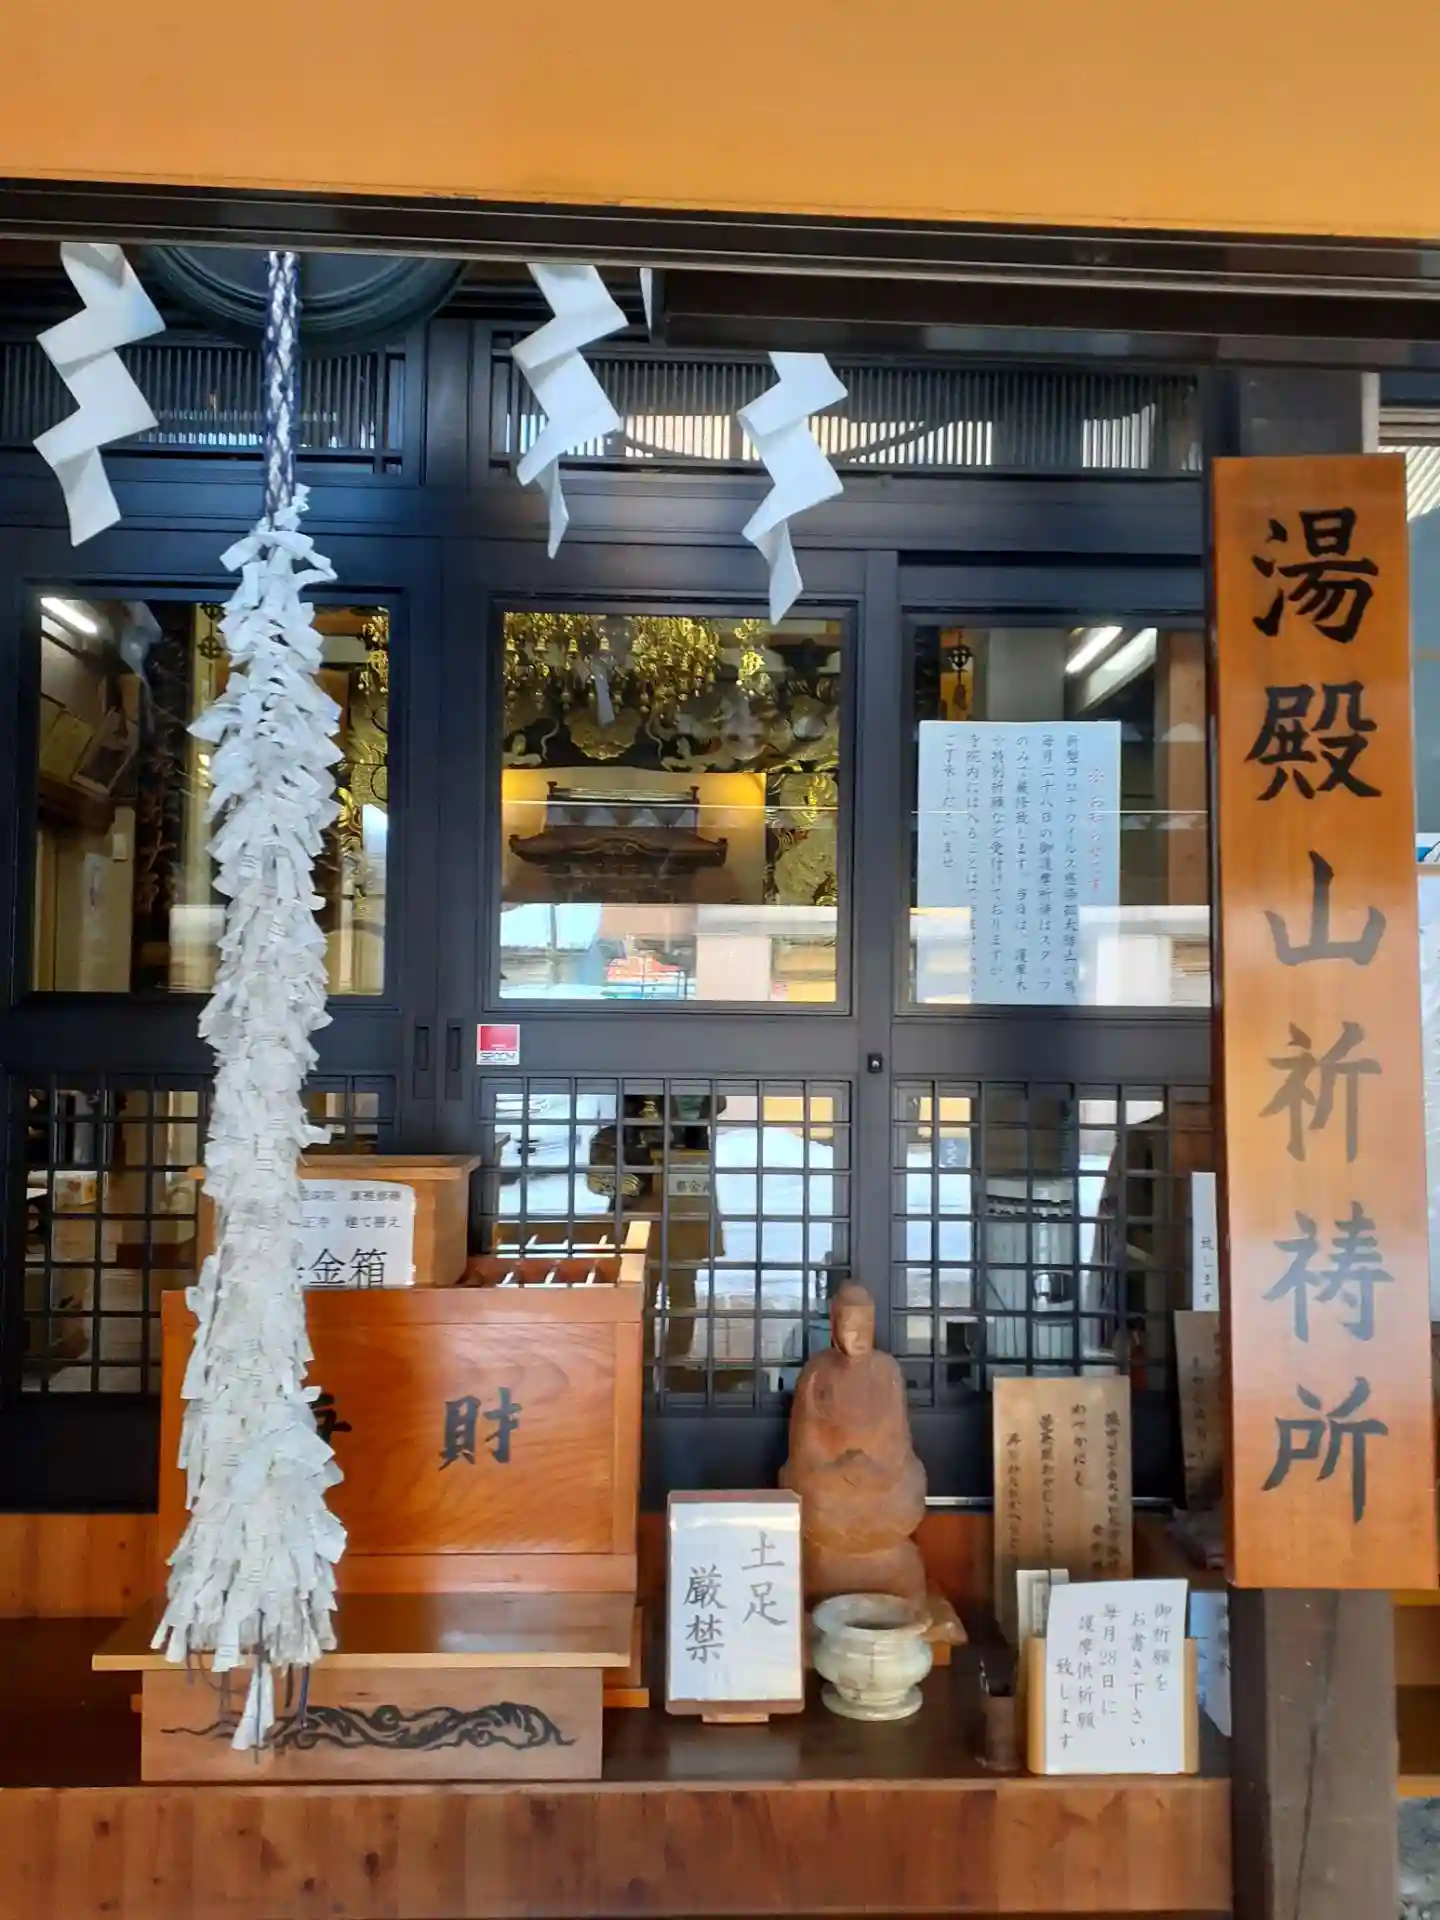 湯殿山祈祷所
※お知らせです
新型コロナウイルス感染拡大防止の為
毎月二十八日の御護摩祈祷はスタッフ
のみで厳修致します。当日は、護摩木
や特別祈願など受付けておりますが、
寺院内には入ることはできませんので、
ご了承くださいませ
建て替え
金箱
財
土足
厳禁
御祈願を
お書き下さい
毎月28日に
護摩供祈願
致します
致します